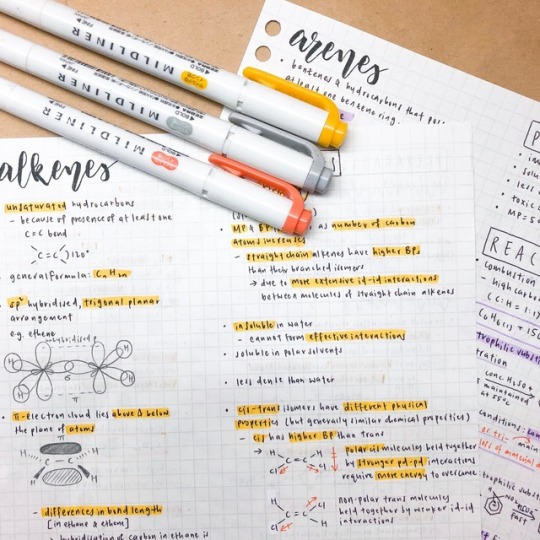 MILDLINER
MILDLINER
MILDLINER
arenes
• benzenes & hydrocarbons that
at least one benzene ring.
alkenes
unsaturated hydrocarbons
- because of presence of at least one
C=C bond
C=C 120°
general formula: CnH2n
sp² hybridised, trigonal planar
arrangement
e.g. ethene
hybridised p
H H
H H
π-electron cloud lies above & below
the plane of atoms
π
H C - C H
H H
- differences in bond length
[in ethane & ethene]
- hybridisation of carbon in ethane is
MP & BP as number of carbon
atoms increases
- straight chain alkenes have higher BP
than their branched isomers
→ due to more extensive id-id interactions
between molecules of straight chain alkenes
• insoluble in water
- cannot form effective interactions
• soluble in polar solvents
• less dense than water
• cis-trans isomers have different physical
properties (but generally similar chemical properties)
- cis has higher BP than trans
→ polar cis molecules held together
by stronger pd-pd interactions
require more energy to overcome
H H
C=C
Cl Cl
non-polar trans molecules
held together by weaker id-id
interactions
H Cl
C=C
Cl H
P
less
toxic
MP = 5
REAC
combustion
- high carbon
(C:H = 1:1)
trophilic substi
conc H2SO4
maintained
at 55°C
conditions:
loss of
trophilic substi
NO2
fast